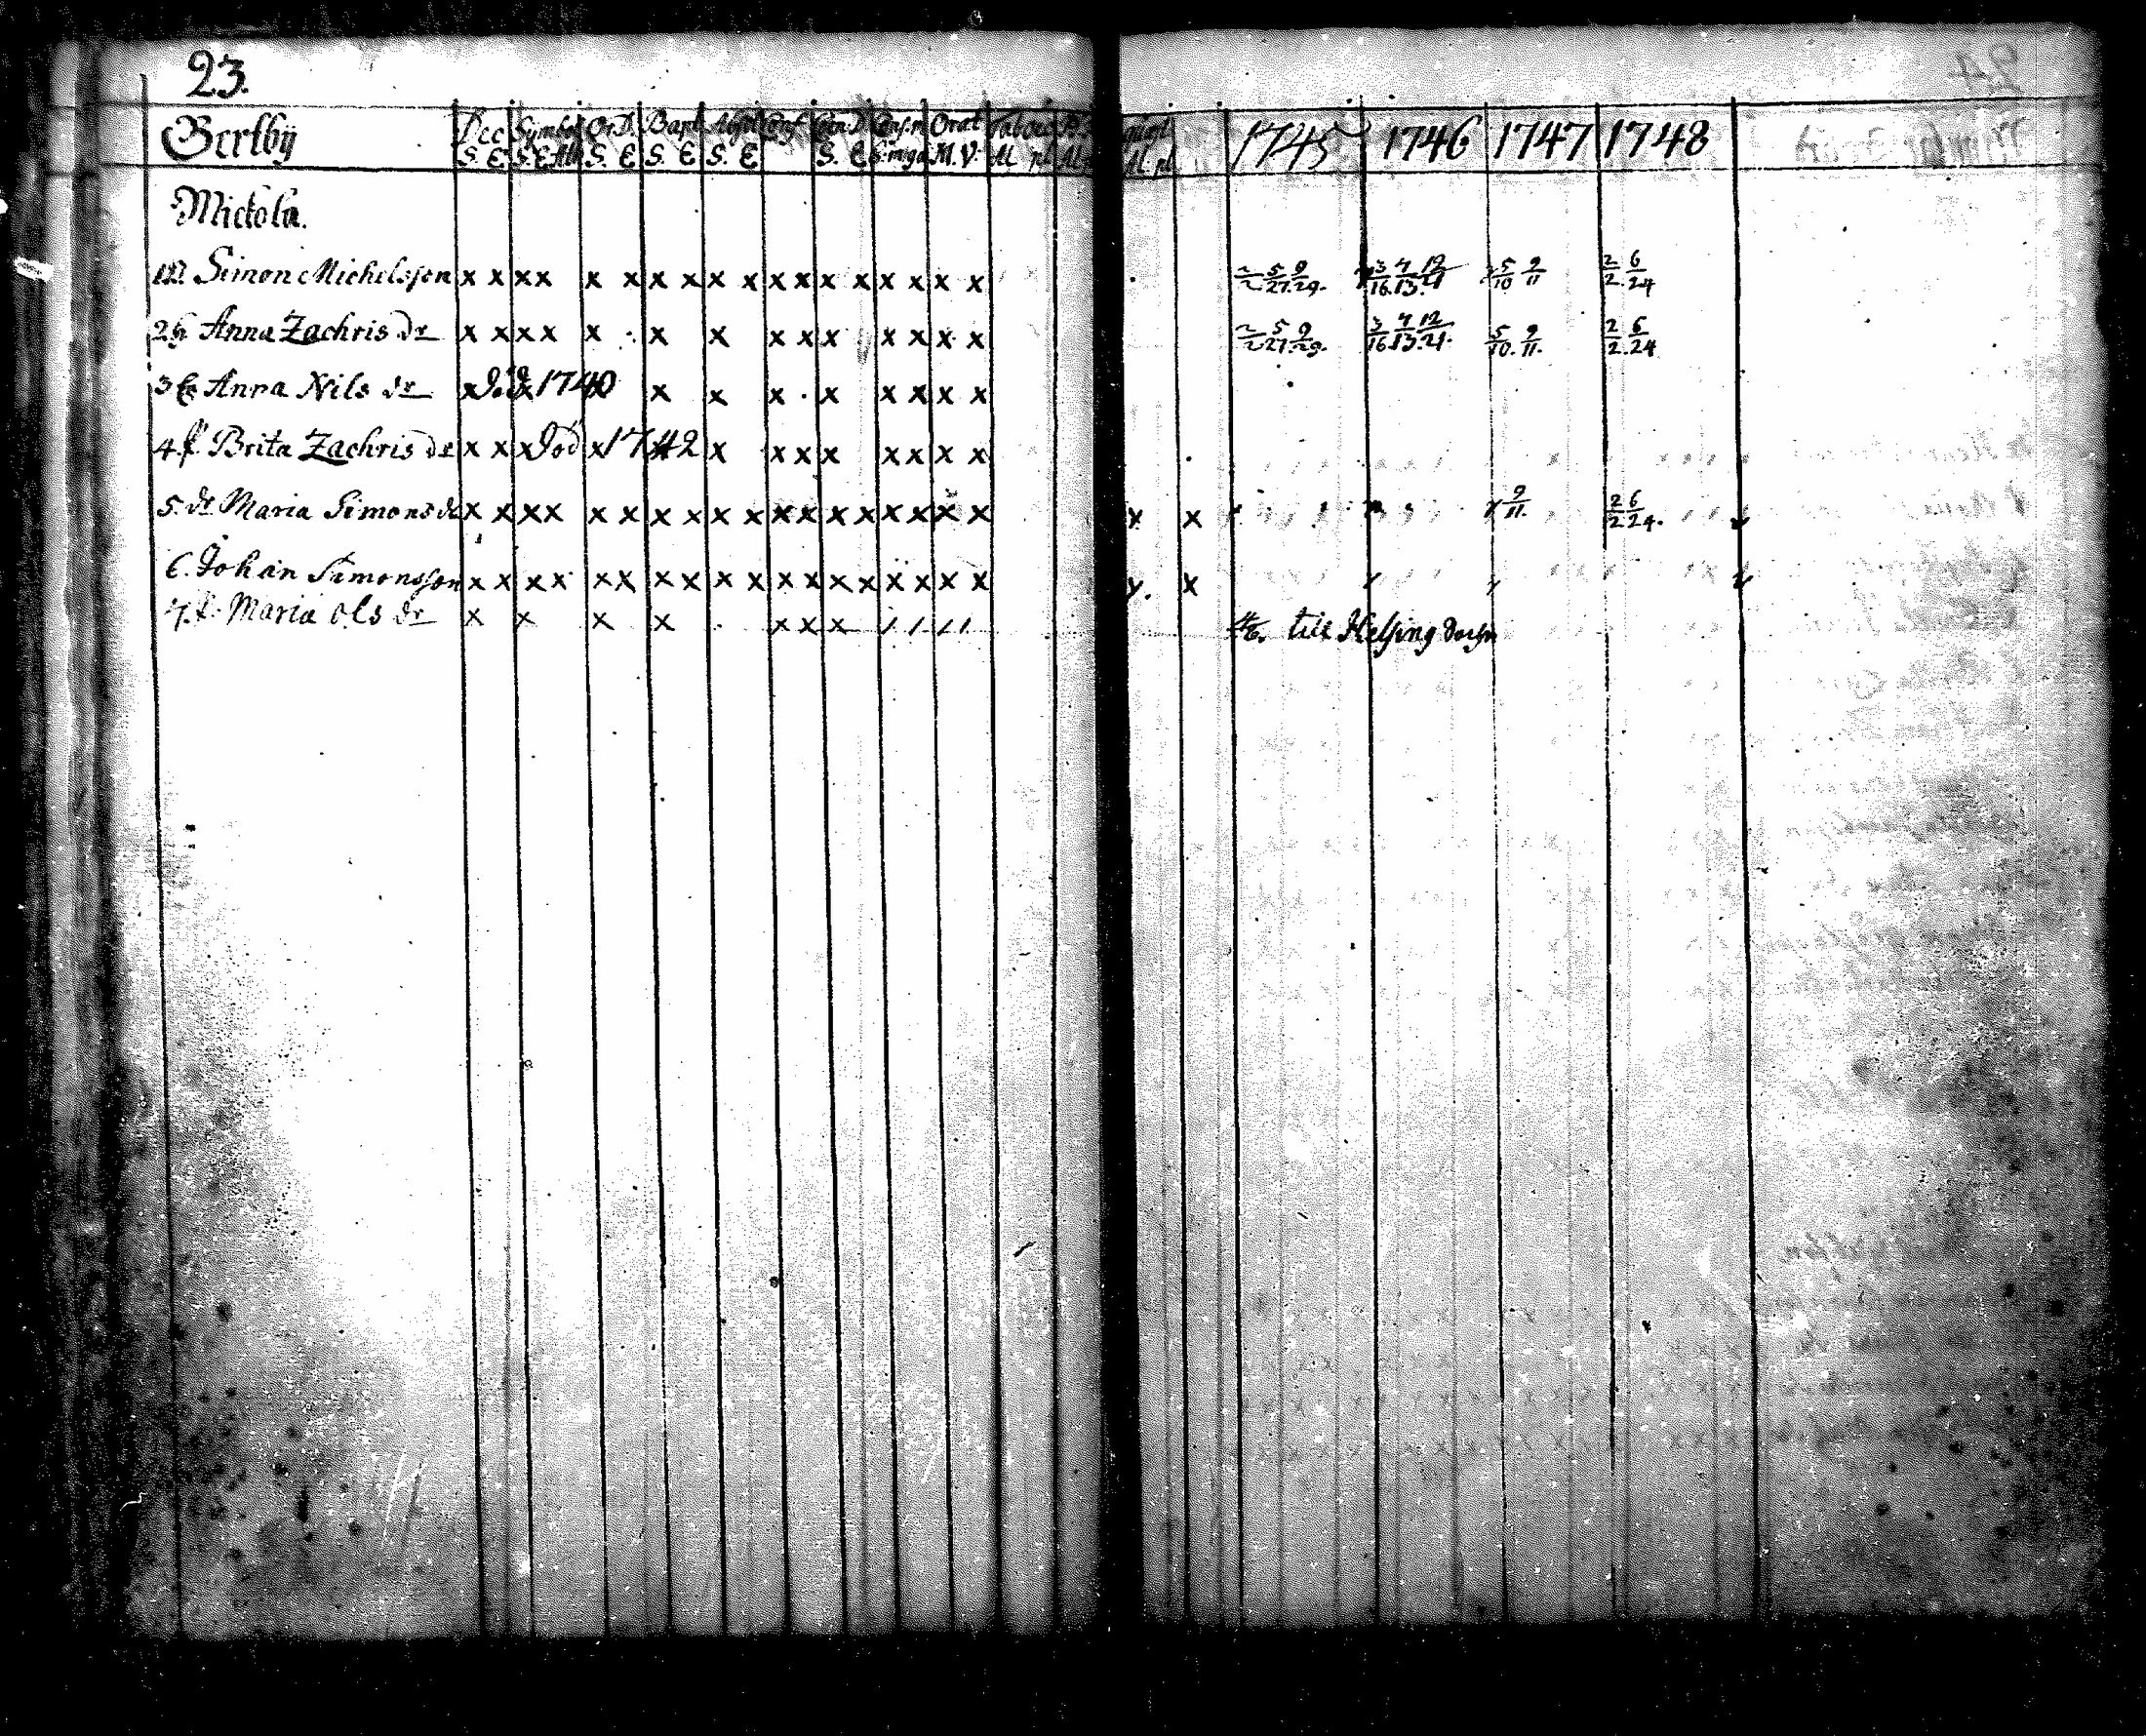 23.
Gerlby Dec Symbol Or.D. Bapt Absol Conf Cœn.D Orat 1745 1746 1747 1748
S. E S. E Ath S. E S. E S. E S. E M. V.
Mickola.
Simon Michelsson x x x x x x x x x x x x x x x x x x 2/2 5/27. 9/29. 3/16. 4/13. 12/21 5/10 9/11 2/2. 6/24
2 h Anna Zachris dr x x x x x x x x x x x x x x 2/2 5/27. 9/29. 3/16. 4/13. 12/21. 5/10. 9/11. 2/2. 6/24
3 Anna Nils dr x död x 1740 x x x x x x x x x
4. Brita Zachris dr x x x död x 1742 x x x x x x x x
5. dr Maria Simons dr x x x x x x x x x x x x x x x x x x x x 9/11. 2/2 6/24.
6. Johan Simonsson x x x x x x x x x x x x x x x x x x x
7. Maria Ols dr x x x x x x x till Helsing